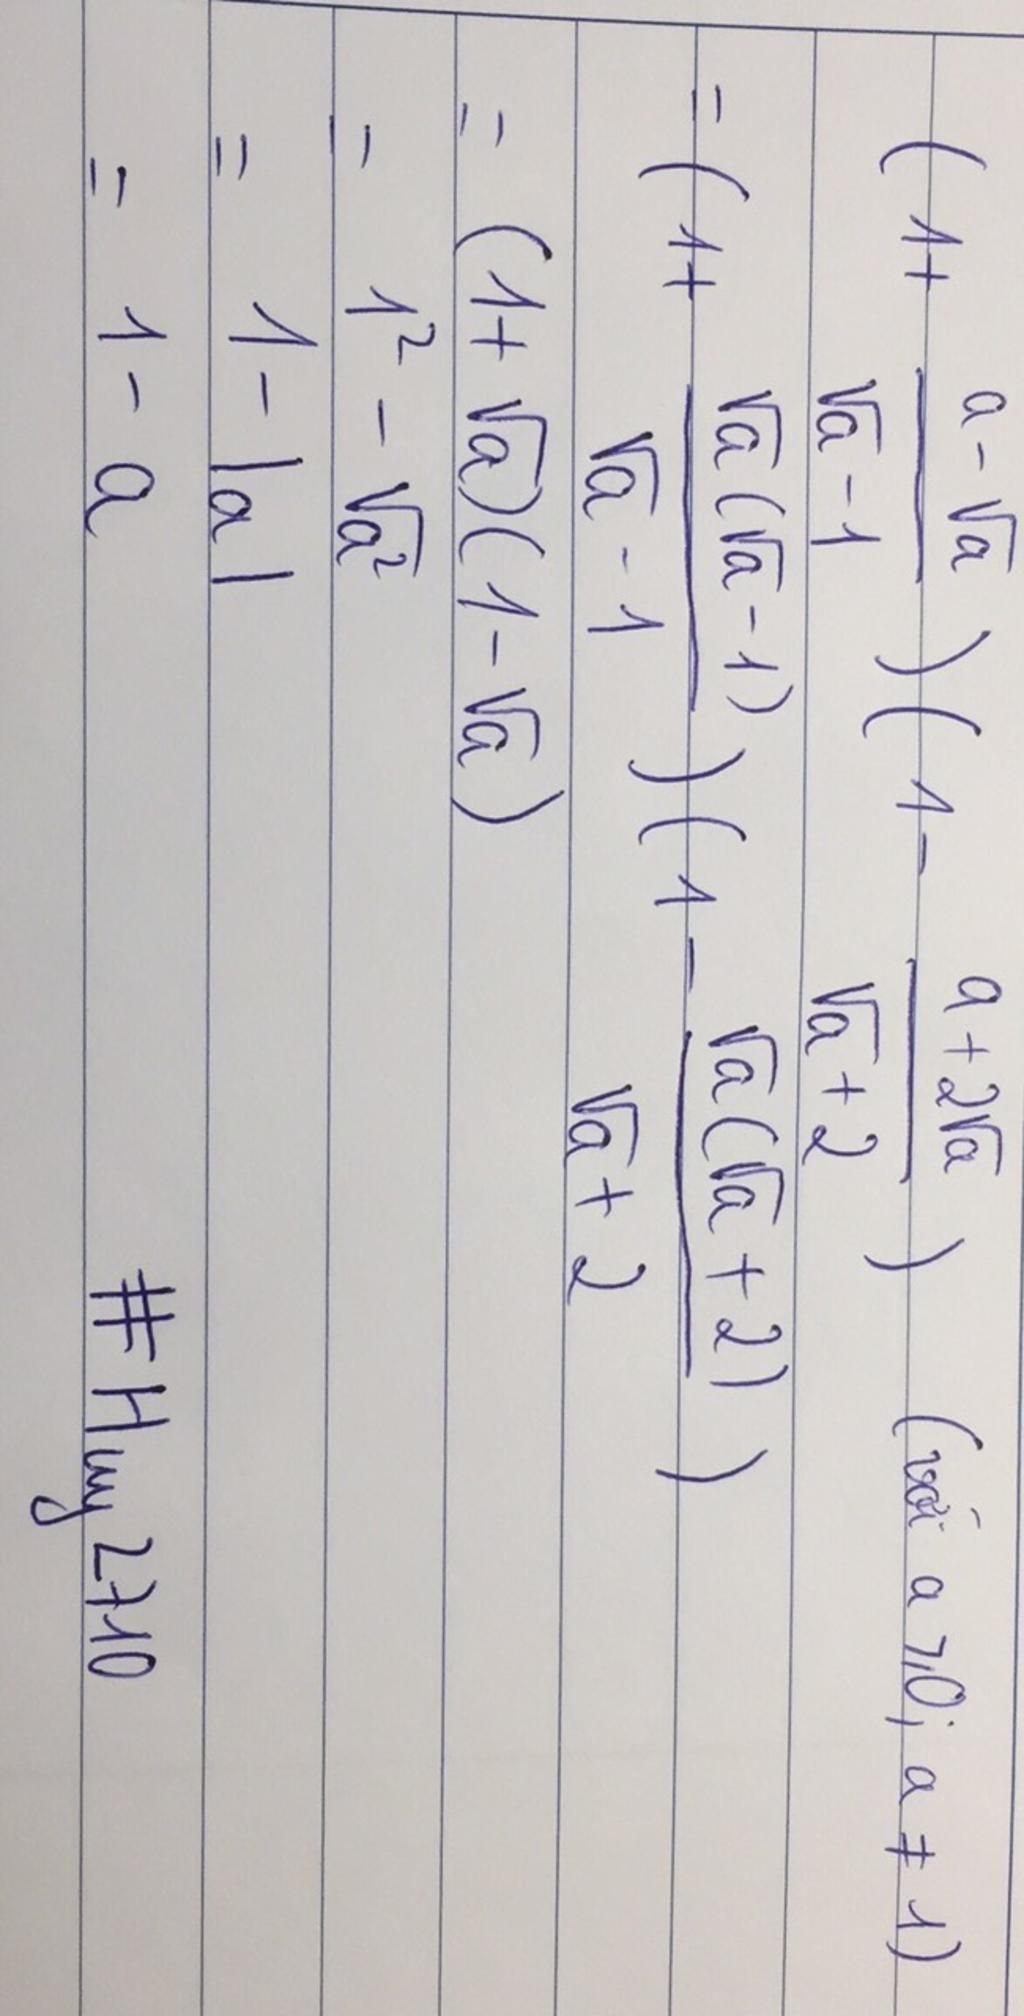 ( 1 + (a - √a)/(√a - 1) ) ( 1 - (a + 2√a)/(√a + 2) ) (với a ≥ 0; a ≠ 1)
= ( 1 + √a(√a - 1)/(√a - 1) ) ( 1 - √a(√a + 2)/(√a + 2) )
= (1 + √a)(1 - √a)
= 1² - √a²
= 1 - |a|
= 1 - a
# Huy 2710